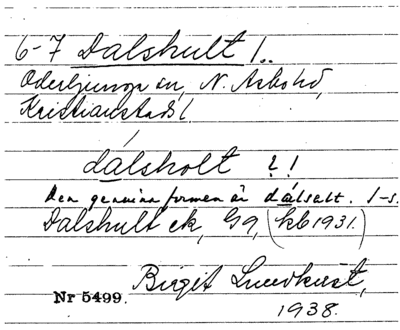 6-7 Dalshult /..
Oderljunga sn, N. Åsbo hd,
Kristianstads l
dálshólt ? !
Den genuina formen är dálsalt. I-s.
Dalshult ek, G9, (kb 1931.)
Birgit Lundkvist,
Nr 5499.
1938.